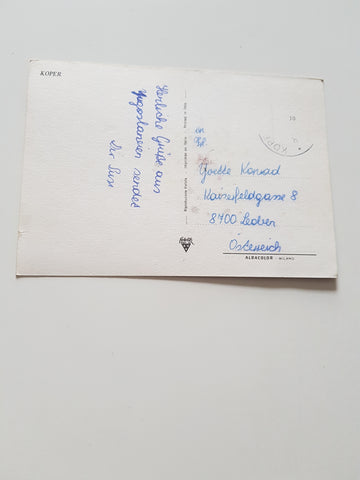 KOPER
Herzliche Grüße aus
Jugoslawien sendet
Dir Susi
An
Goette Konrad
Kaiserfeldgasse 8
8700 Leoben
Österreich
ALBACOLOR - MILANO